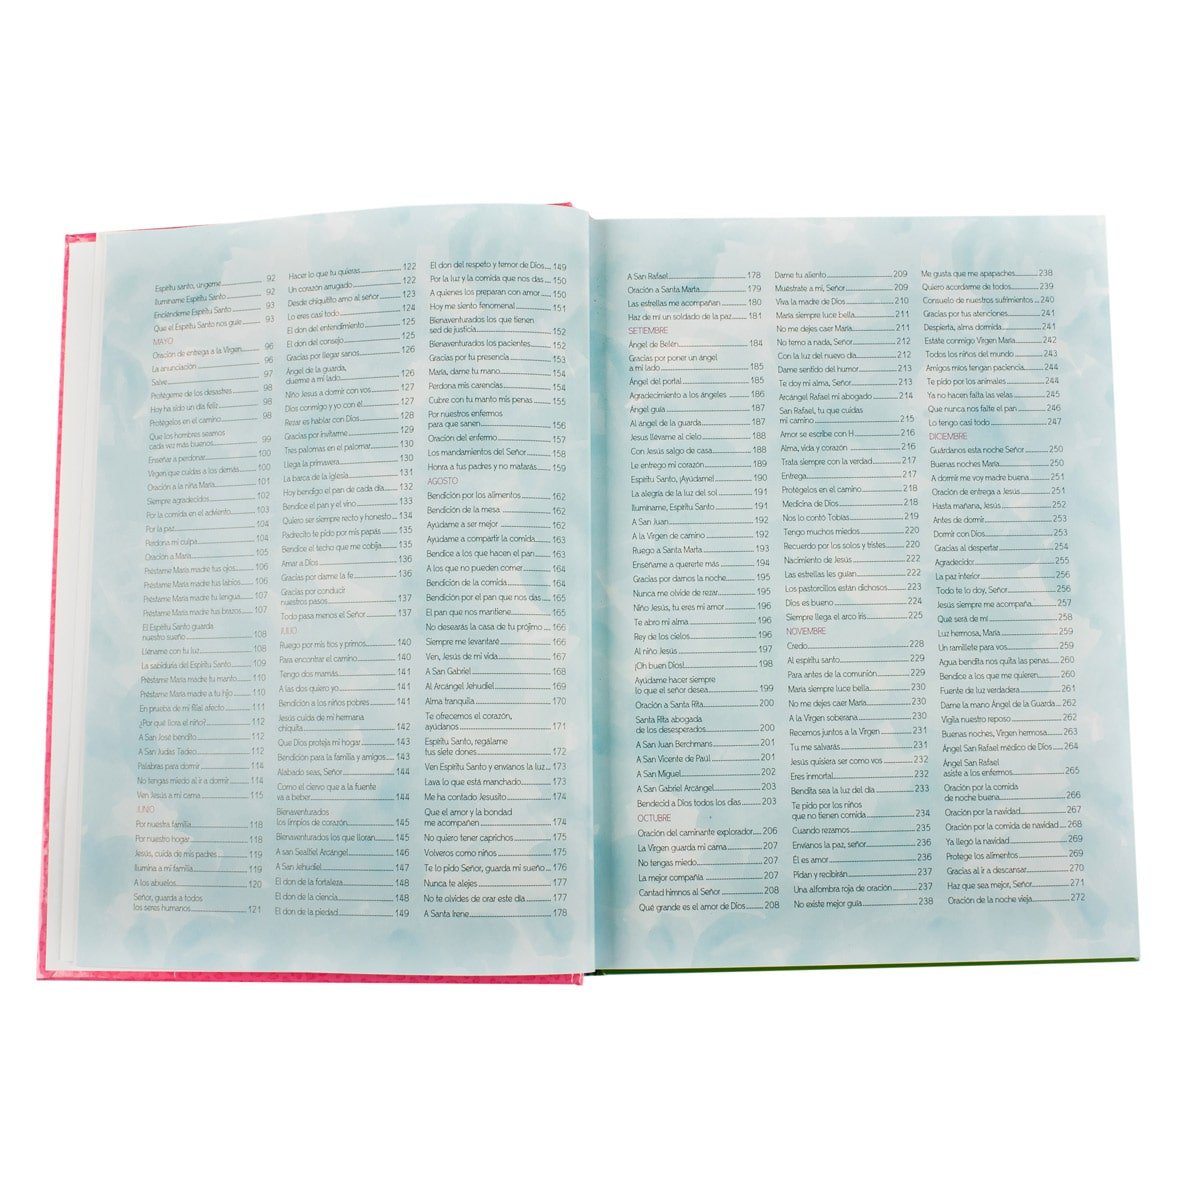 Espíritu santo, úngeme 92
Ilumíname Espíritu Santo 92
Enciéndeme Espíritu Santo 93
Que el Espíritu Santo nos guíe 93
MAYO
Oración de entrega a la Virgen 96
La anunciación 96
Salve 97
Protégeme de los desastres 98
Hoy ha sido un día feliz 98
Protégelos en el camino 98
Que los hombres seamos
cada vez más buenos 99
Enseñar a perdonar 100
Virgen que cuidas a los demás 100
Oración a la niña María 101
Siempre agradecidos 102
Por la comida en el adviento 103
Por la paz 104
Perdona mi culpa 104
Oración a María 105
Préstame María madre tus ojos 106
Préstame María madre tus labios 106
Préstame María madre tu lengua 107
Préstame María madre tus brazos 107
El Espíritu Santo guarda
nuestro sueño 108
Lléname con tu luz 108
La sabiduría del Espíritu Santo 109
Préstame María madre tu manto 110
Préstame María madre a tu hijo 110
En prueba de mi filial afecto 111
¿Por qué llora el niño? 112
A San José bendito 112
A San Judas Tadeo 112
Palabras para dormir 114
No tengas miedo al ir a dormir 114
Ven Jesús a mi cama 115
JUNIO
Por nuestra familia 118
Por nuestro hogar 118
Jesús, cuida de mis padres 119
Ilumina a mi familia 119
A los abuelos 120
Señor, guarda a todos
los seres humanos 121
Hacer lo que tu quieras 122
Un corazón arrugado 122
Desde chiquitito amo al señor 123
Lo eres casi todo 124
El don del entendimiento 125
El don del consejo 125
Gracias por llegar sanos 126
Ángel de la guarda,
duerme a mi lado 126
Niño Jesús a dormir con vos 127
Dios conmigo y yo con él 127
Rezar es hablar con Dios 128
Gracias por invitarme 129
Tres palomas en el palomar 130
Llega la primavera 130
La barca de la iglesia 131
Hoy bendigo el pan de cada día 132
Bendice el pan y el vino 133
Quiero ser siempre recto y honesto 134
Padrecito te pido por mis papás 135
Bendice el techo que me cobija 135
Amar a Dios 136
Gracias por darme la fe 136
Gracias por conducir
nuestros pasos 137
Todo pasa menos el Señor 137
JULIO
Ruego por mis tíos y primos 140
Para encontrar el camino 140
Tengo dos mamás 141
A las dos quiero yo 141
Bendición a los niños pobres 141
Jesús cuida de mi hermana
chiquita 142
Que Dios proteja mi hogar 143
Bendición para la familia y amigos 143
Alabado seas, Señor 144
Como el ciervo que a la fuente
va a beber 144
Bienaventurados
los limpios de corazón 145
Bienaventurados los que lloran 145
A san Sealtiel Arcángel 146
A San Jehudiel 147
El don de la fortaleza 148
El don de la ciencia 148
El don de la piedad 149
El don del respeto y temor de Dios 149
Por la luz y la comida que nos das 150
A quienes los preparan con amor 150
Hoy me siento fenomenal 151
Bienaventurados los que tienen
sed de justicia 152
Bienaventurados los pacientes 152
Gracias por tu presencia 153
María, dame tu mano 154
Perdona mis carencias 154
Cubre con tu manto mis penas 155
Por nuestros enfermos
para que sanen 156
Oración del enfermo 157
Los mandamientos del Señor 158
Honra a tus padres y no matarás 159
AGOSTO
Bendición por los alimentos 162
Bendición de la mesa 162
Ayúdame a ser mejor 162
Ayúdame a compartir la comida 163
Bendice a los que hacen el pan 163
A los que no pueden comer 164
Bendición de la comida 164
Bendición por el pan que nos das 165
El pan que nos mantiene 165
No desearás la casa de tu prójimo 166
Siempre me levantaré 166
Ven, Jesús de mi vida 167
A San Gabriel 168
Al Arcángel Jehudiel 169
Alma tranquila 170
Te ofrecemos el corazón,
ayúdanos 171
Espíritu Santo, regálame
tus siete dones 172
Ven Espíritu Santo y envíanos la luz 173
Lava lo que está manchado 173
Me ha contado Jesusito 174
Que el amor y la bondad
me acompañen 174
No quiero tener caprichos 175
Volveros como niños 175
Te lo pido Señor, guarda mi sueño 176
Nunca te alejes 177
No te olvides de orar este día 177
A Santa Irene 178
A San Rafael 178
Oración a Santa Marta 179
Las estrellas me acompañan 180
Haz de mi un soldado de la paz 181
SETIEMBRE
Ángel de Belén 184
Gracias por poner un ángel
a mi lado 185
Ángel del portal 185
Agradecimiento a los ángeles 186
Ángel guía 187
Al ángel de la guarda 187
Jesús llévame al cielo 188
Con Jesús salgo de casa 188
Le entrego mi corazón 189
Espíritu Santo, ¡Ayúdame! 190
La alegría de la luz del sol 191
Ilumíname, Espíritu Santo 191
A San Juan 192
A la Virgen de camino 192
Ruego a Santa Marta 193
Enséñame a quererte más 194
Gracias por darnos la noche 195
Nunca me olvide de rezar 195
Niño Jesús, tu eres mi amor 196
Te abro mi alma 196
Rey de los cielos 196
Al niño Jesús 197
¡Oh buen Dios! 198
Ayúdame hacer siempre
lo que el señor desea 199
Oración a Santa Rita 200
Santa Rita abogada
de los desesperados 200
A San Juan Berchmans 201
A San Vicente de Paúl 201
A San Miguel 202
A San Gabriel Arcángel 203
Bendecid a Dios todos los días 203
OCTUBRE
Oración del caminante explorador 206
La Virgen guarda mi cama 207
No tengas miedo 207
La mejor compañía 207
Cantad himnos al Señor 208
Qué grande es el amor de Dios 208
Dame tu aliento 209
Muéstrate a mí, Señor 209
Viva la madre de Dios 210
María siempre luce bella 211
No me dejes caer María 211
No temo a nada, Señor 212
Con la luz del nuevo día 212
Dame sentido del humor 213
Te doy mi alma, Señor 213
Arcángel Rafael mi abogado 214
San Rafael, tu que cuidas
mi camino 215
Amor se escribe con H 216
Alma, vida y corazón 216
Trata siempre con la verdad 217
Entrega 217
Protégelos en el camino 218
Medicina de Dios 218
Nos lo contó Tobías 219
Tengo muchos miedos 220
Recuerdo por los solos y tristes 220
Nacimiento de Jesús 222
Las estrellas les guían 222
Los pastorcillos están dichosos 223
Dios es bueno 224
Siempre llega el arco iris 225
NOVIEMBRE
Credo 228
Al espíritu santo 229
Para antes de la comunión 229
María siempre luce bella 230
No me dejes caer María 230
A la Virgen soberana 230
Recemos juntos a la Virgen 231
Tu me salvarás 231
Jesús quisiera ser como vos 232
Eres inmortal 232
Bendita sea la luz del día 233
Te pido por los niños
que no tienen comida 234
Cuando rezamos 235
Envíanos la paz, señor 236
Él es amor 236
Pidan y recibirán 237
Una alfombra roja de oración 237
No existe mejor guía 238
Me gusta que me apapaches 238
Quiero acordarme de todos 239
Consuelo de nuestros sufrimientos 240
Gracias por tus atenciones 241
Despierta, alma dormida 241
Estáte conmigo Virgen María 242
Todos los niños del mundo 243
Amigos míos tengan paciencia 244
Te pido por los animales 244
Ya no hacen falta las velas 245
Que nunca nos falte el pan 246
Lo tengo casi todo 247
DICIEMBRE
Guárdanos esta noche Señor 250
Buenas noches María 250
A dormir me voy madre buena 251
Oración de entrega a Jesús 251
Hasta mañana, Jesús 252
Antes de dormir 253
Dormir con Dios 253
Gracias al despertar 254
Agradecidor 255
La paz interior 256
Todo te lo doy, Señor 256
Jesús siempre me acompaña 257
Qué será de mí 258
Luz hermosa, María 259
Un ramillete para vos 259
Agua bendita nos quita las penas 260
Bendice a los que me quieren 260
Fuente de luz verdadera 261
Dame la mano Ángel de la Guarda 262
Vigila nuestro reposo 262
Buenas noches, Virgen hermosa 263
Ángel San Rafael médico de Dios 264
Ángel San Rafael
asiste a los enfermos 265
Oración por la comida
de noche buena 266
Oración por la navidad 267
Oración por la comida de navidad 268
Ya llegó la navidad 269
Protege los alimentos 269
Gracias al ir a descansar 270
Haz que sea mejor, Señor 271
Oración de la noche vieja 272